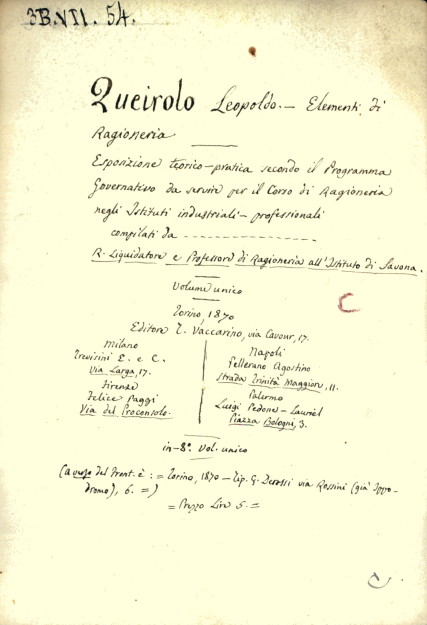 3B.VII. 54.
Queirolo Leopoldo. — Elementi di
Ragioneria
Esposizione teorico-pratica secondo il Programma
Governativo da servire per il Corso di Ragioneria
negli Istituti industriali-professionali
compilati da - - - - - - - - - - - -
R. Liquidatore e Professore di Ragioneria all'Istituto di Savona.
Volume unico
Torino, 1870
Editore T. Vaccarino, via Cavour, 17.
Milano
Trevisini E. e C.
via Larga, 17.
Firenze
Felice Paggi
Via del Proconsolo.
Napoli
Pellerano Agostino
Strada Trinità Maggiore, 11.
Palermo
Luigi Pedone-Lauriel
Piazza Bologni, 3.
in-8° Vol. unico
(a tergo del Front. è : = Torino, 1870 - Tip. G. Derossi via Rossini (già Ippo-
dromo), 6. =)
= Prezzo Lire 5. =